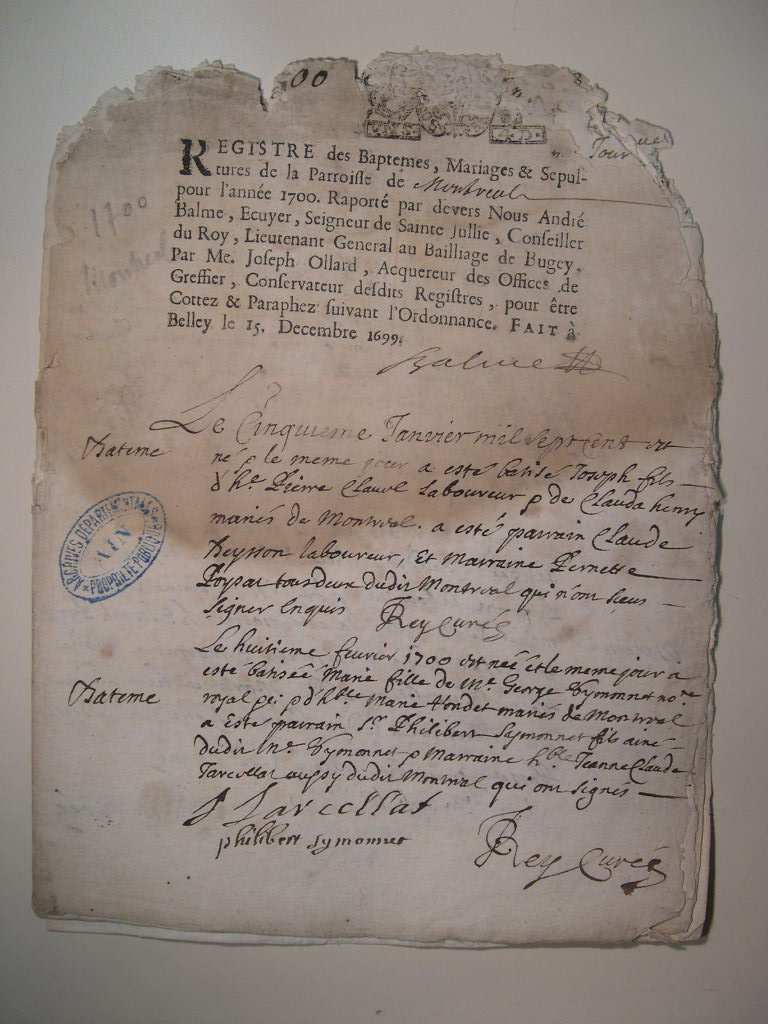 00
REGISTRE des Baptemes, Mariages & Sepul-
tures de la Parroisse de Montreal
pour l'année 1700. Raporté par devers Nous André
Balme, Ecuyer, Seigneur de Sainte Jullie, Conseiller
du Roy, Lieutenant General au Bailliage de Bugey,
Par Me. Joseph Ollard, Acquereur des Offices de
Greffier, Conservateur desdits Registres, pour être
Cottez & Paraphez suivant l'Ordonnance. FAIT à
Belley le 15. Decembre 1699.
1700
Balme
Le Cinquieme Janvier mil sept cent est
Bateme
né p le meme jour a esté batisé Joseph fils
Pierre Claude laboureur p de Clauda henry
mariés de Montreal. a esté parrain Claude
Reysson laboureur, et Marraine Pernette
tous deux dudit Montreal qui n'ont sceus
signer Enquis Rey Curé
ARCHIVES DÉPARTEMENTALES
AIN
PROPRIÉTÉ PUBLIQUE
Le huitieme fevrier 1700 est née et le meme jour a
esté batisée Marie fille de Me. George Symonnet nore
Bateme
royal p d'hble Marie mariés de Montreal
a Esté parrain Sr. Philibert Symonnet fils ainé
dudit Me. Symonnet p Marraine hble Jeanne Claude
Tarcollat aussy dudit Montreal qui ont signés
J Tarcollat
philibert symonnet
Rey Curé